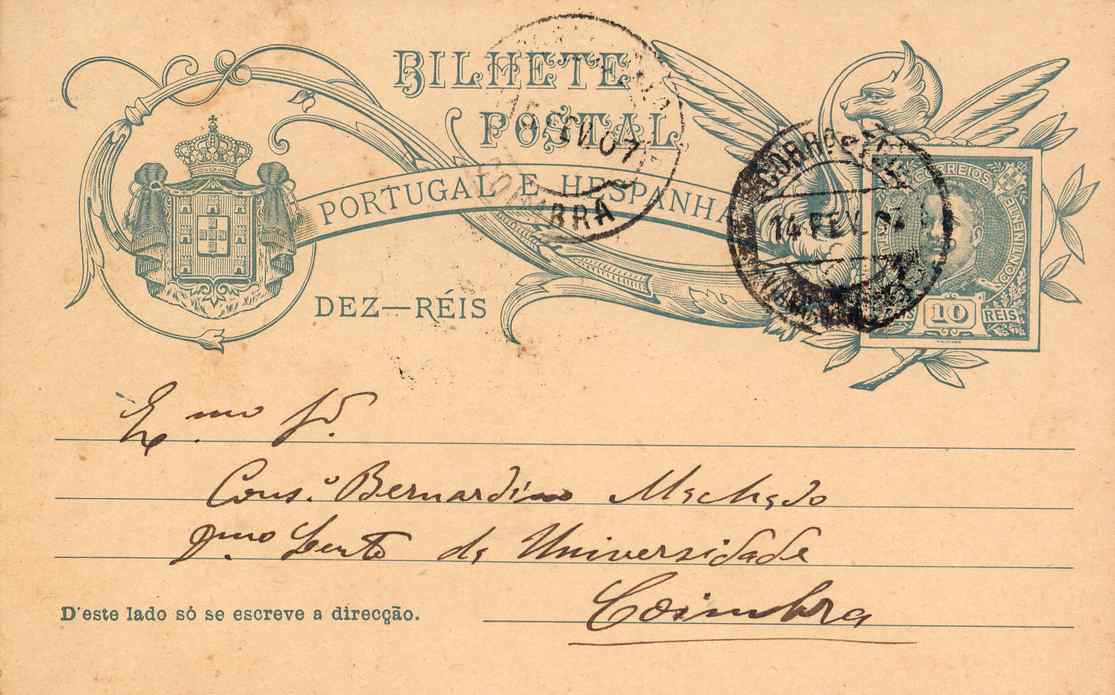 BILHETE
POSTAL
PORTUGAL E HESPANHA
DEZ—RÉIS
CORREIOS
CONTINENTE
10
REIS
14 FEV. 07
07
Ex.mo Sr.
Cons.º Bernardino Machado
D.mo Lente da Universidade
Coimbra
D'este lado só se escreve a direcção.